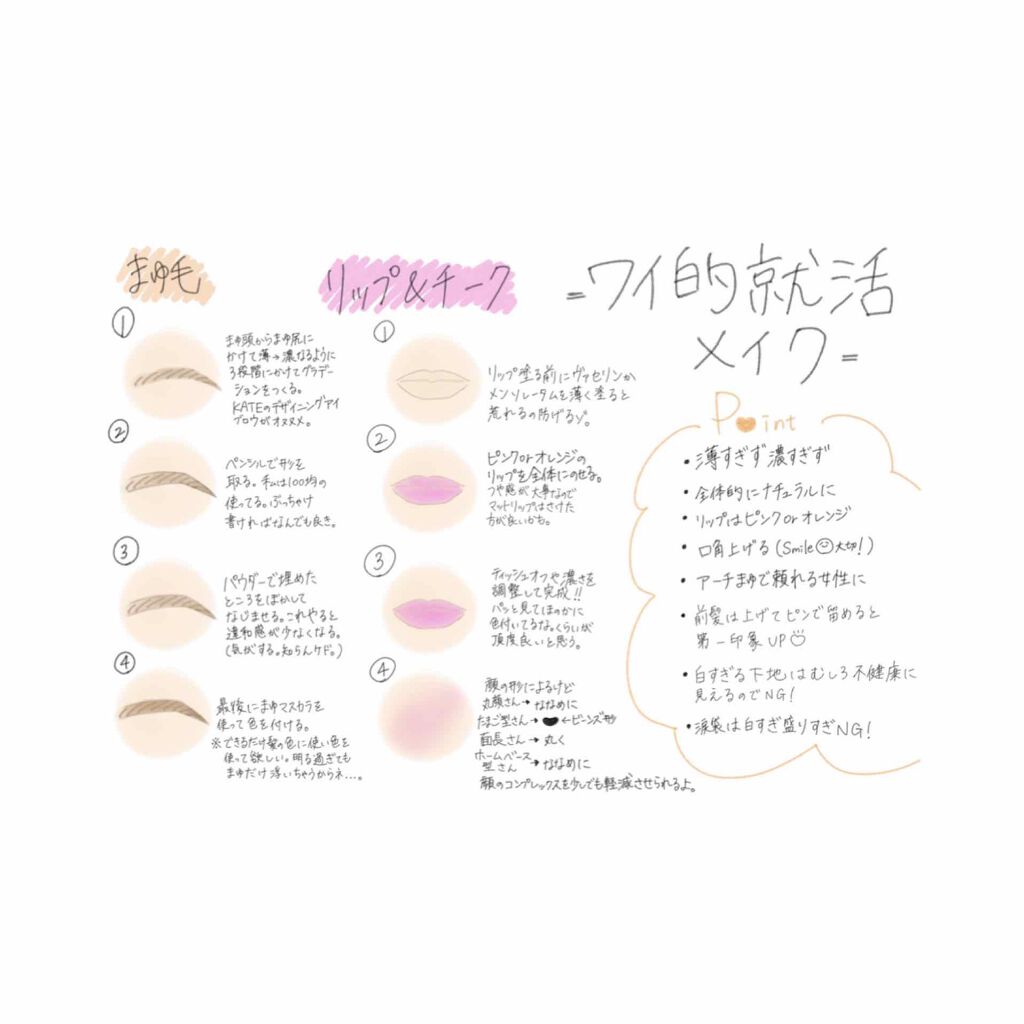 =ワイ的就活
メイク=
まゆ毛
①
まゆ頭からまゆ尻に
かけて薄→濃なるように
3段階にかけてグラデー
ションをつくる。
KATEのデザイニングアイ
ブロウがオススメ。
②
ペンシルで形を
取る。私は100均の
使ってる。ぶっちゃけ
書ければなんでも良き。
③
パウダーで埋めた
ところをぼかして
なじませる。これやると
違和感が少なくなる。
(気がする。知らんケド。)
④
最後にまゆマスカラを
使って色を付ける。
※できるだけ髪の色に使い色を
使って欲しい。明る過ぎても
まゆだけ浮いちゃうからネ…。
リップ&チーク
①
リップ塗る前にヴァセリンか
メンソレータムを薄く塗ると
荒れるの防げるゾ。
②
ピンクorオレンジの
リップを全体にのせる。
つや感が大事なので
マットリップはさけた
方が良いかも。
③
ティッシュオフや濃さを
調整して完成!!
パッと見てほのかに
色付いてるな。くらいが
頂度良いと思う。
④
顔の形によるけど
丸顔さん→ななめに
たまご型さん→ ←ビーンズ形
面長さん→丸く
ホームベース
型さん→ななめに
顔のコンプレックスを少しでも軽減させられるよ。
Point
・薄すぎず濃すぎず
・全体的にナチュラルに
・リップはピンクorオレンジ
・口角上げる(Smile大切!)
・アーチまゆで頼れる女性に
・前髪は上げてピンで留めると
第一印象UP
・白すぎる下地はむしろ不健康に
見えるのでNG!
・涙袋は白すぎ盛りすぎNG!